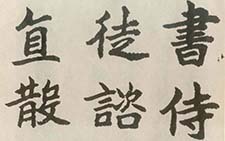 書侍
徒諮
直散